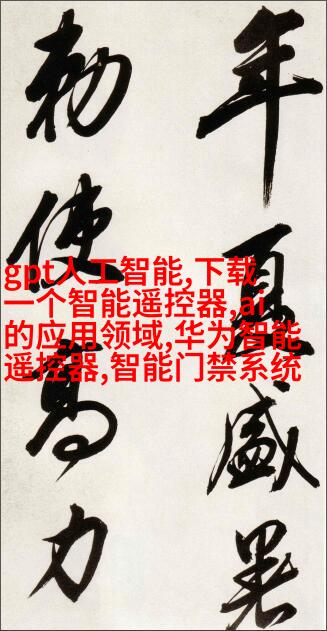 年夏盛暑
勅使高力
gpt人工智能,下载
一个智能遥控器,ai
的应用领域,华为智能
遥控器,智能门禁系统